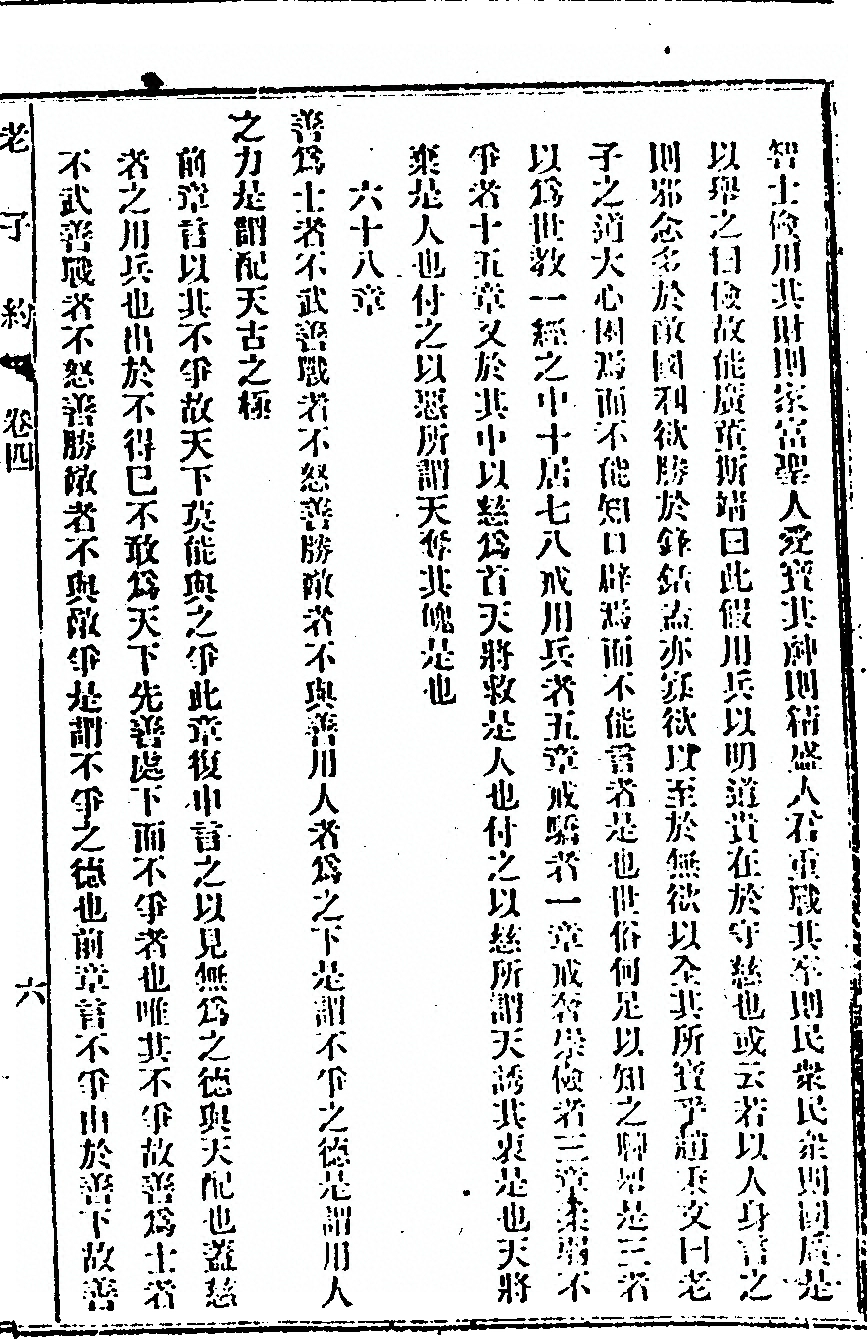 智士儉用其財則家富聖人愛寶其神則精盛人君重戰其卒則民衆民衆則國廣是
以舉之曰儉故能廣董斯端曰此假用兵以明道貴在於守慈也或云若以人身言之
則邪念多於敵國利欲勝於鋒銛盍亦寡欲以至於無欲以全其所寶乎趙秉文曰老
子之道大心困焉而不能知口辟焉而不能言者是也世俗何足以知之聊舉是三者
以爲世教一經之中十居七八戒用兵者五章戒驕者一章戒奢崇儉者三章柔弱不
爭者十五章又於其中以慈爲首天將救是人也付之以慈所謂天誘其衷是也天將
棄是人也付之以惡所謂天奪其魄是也
六十八章
善爲士者不武善戰者不怒善勝敵者不與善用人者爲之下是謂不爭之德是謂用人
之力是謂配天古之極
前章言以其不爭故天下莫能與之爭此章復申言之以見無爲之德與天配也蓋慈
者之用兵也出於不得已不敢爲天下先善處下而不爭者也唯其不爭故善爲士者
不武善戰者不怒善勝敵者不與敵爭是謂不爭之德也前章言不爭由於善下故善
老子約 卷四 六